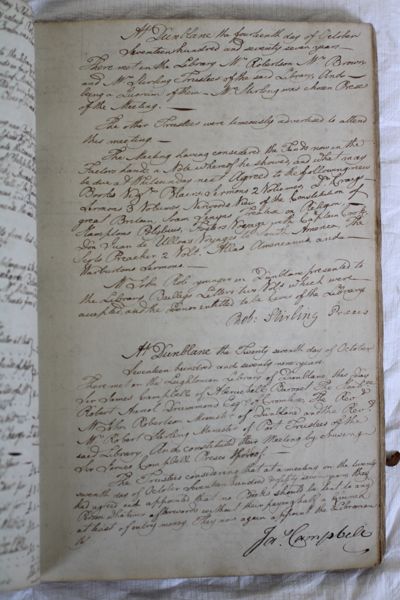 At Dunblane the fourteenth day of October
Seventeen hundred and seventy seven years
There met in the Library Mr Robertson Mr Brown
and Mr Stirling Trustees of the said Library And
being a Quorum of them Mr Stirling was chosen Preses
of the Meeting.
The other Trustees were timeously advertised to attend
this meeting
The Meeting having considered the Funds now in the
Factors hands a Note whereof he showed, and what may
be due at next Agreed to the following new
Books Viz Blairs Sermons 2 Volumes
Sermons 3 Volumes View of the Constitution of
great Britain, Ivan
Hamptons Polybius, Voyage Captain Cook
Don Juan de Ulloas Voyage to South America, The
Preacher 2 Vols, Atlas Americanus and
Warburtons Sermons
Mr John Rob younger in Dunblane presented to
the Library Letters two Vols which were
accepted and the Donor entitled to be of the Library
Rob: Stirling Preses
At Dunblane the Twenty seventh day of October
Seventeen hundred and seventy nine years.
There met in the Leightonian Library of Dunblane, this day
Sir James Campbell of Aberuchill Baronet The
Robert Drummond Esqr of Cromlix The Revd
Mr John Robertson Minister of Dunblane and the Revd
Mr Robert Stirling Minister of Port Trustees of the
said Library And constituted their Meeting by choosing
Sir James Campbell Preses thereof
The Trustees considering that at a meeting on the twenty
seventh day of October Seventeen hundred and fifty seven years they
had agreed and appointed that no Books should be lent to any
Person afterwards without their paying half a Guinea
at least of entry money They now again appoint the Librarian
to
Jas Campbell